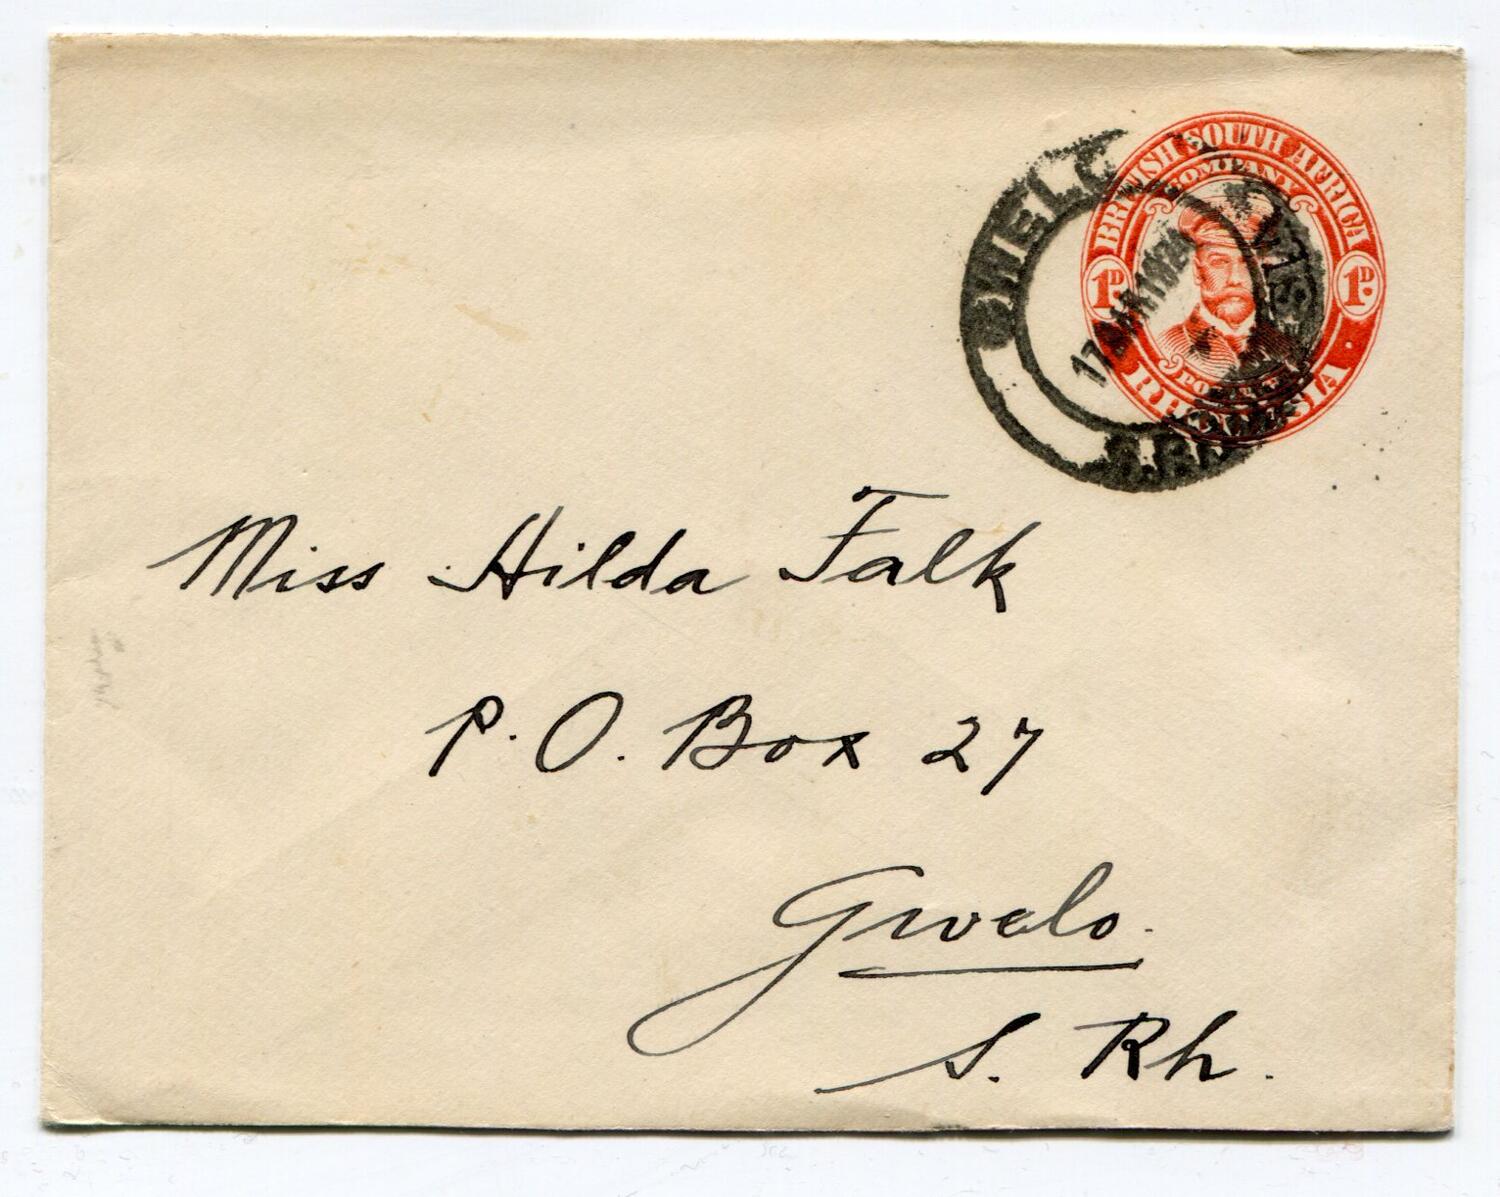 BRITISH SOUTH AFRICA
COMPANY
1D. 1D.
POSTAGE
RHODESIA
GWELO
17 MAR 1924
S.RH
Miss Hilda Falk
P. O. Box 27
Gwelo.
S. Rh.